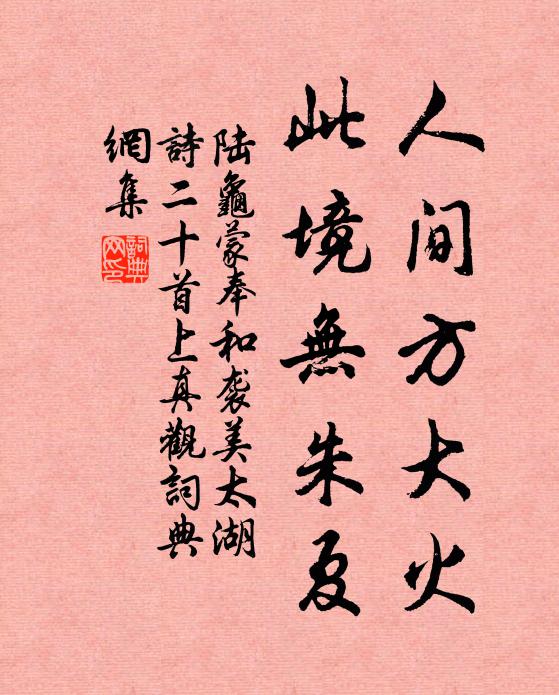 人间方大火
此境無朱夏
陆龜蒙奉和袭美太湖
詩二十首上真觀詞典
網集
詞典網印